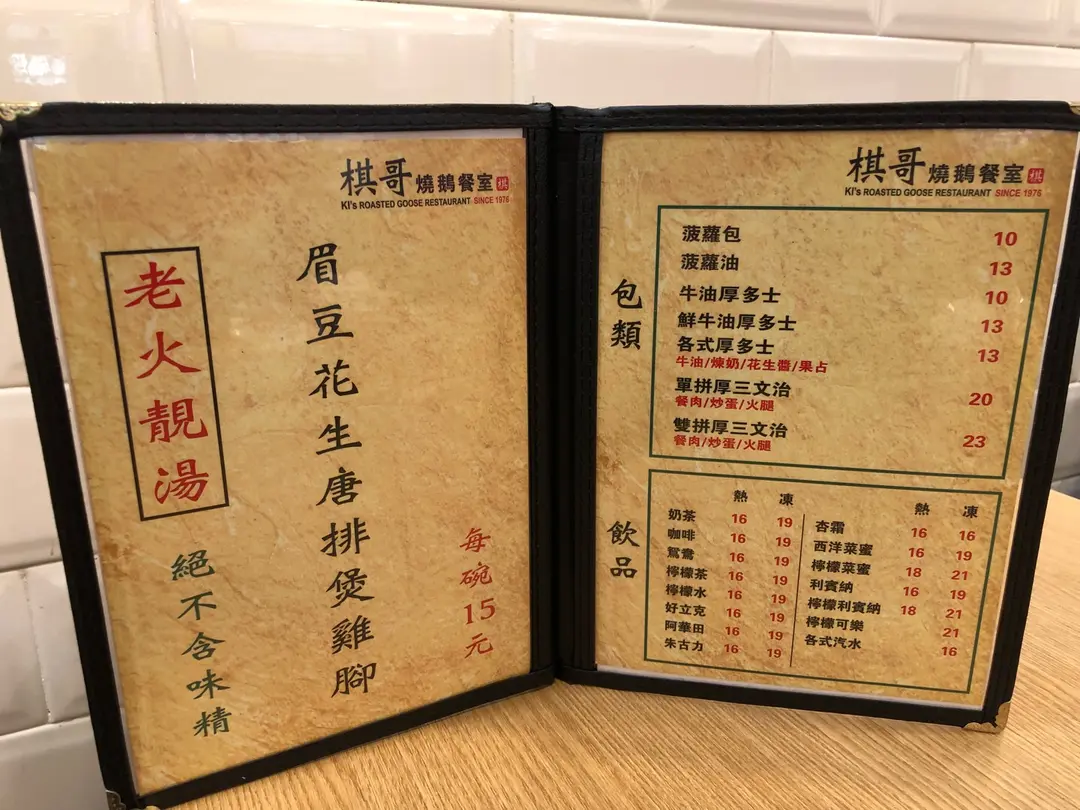 棋哥燒鵝餐室 棋
KI's ROASTED GOOSE RESTAURANT SINCE 1976
老火靚湯
絕不含味精
眉豆花生唐排煲雞腳
每碗15元
棋哥燒鵝餐室 棋
KI's ROASTED GOOSE RESTAURANT SINCE 1976
包類
菠蘿包 10
菠蘿油 13
牛油厚多士 10
鮮牛油厚多士 13
各式厚多士 13
牛油/煉奶/花生醬/果占
單拼厚三文治 20
餐肉/炒蛋/火腿
雙拼厚三文治 23
餐肉/炒蛋/火腿
飲品
熱 凍
奶茶 16 19
咖啡 16 19
鴛鴦 16 19
檸檬茶 16 19
檸檬水 16 19
好立克 16 19
阿華田 16 19
朱古力 16 19
熱 凍
杏霜 16 16
西洋菜蜜 16 19
檸檬菜蜜 18 21
利賓納 16 19
檸檬利賓納 18 21
檸檬可樂 21
各式汽水 16